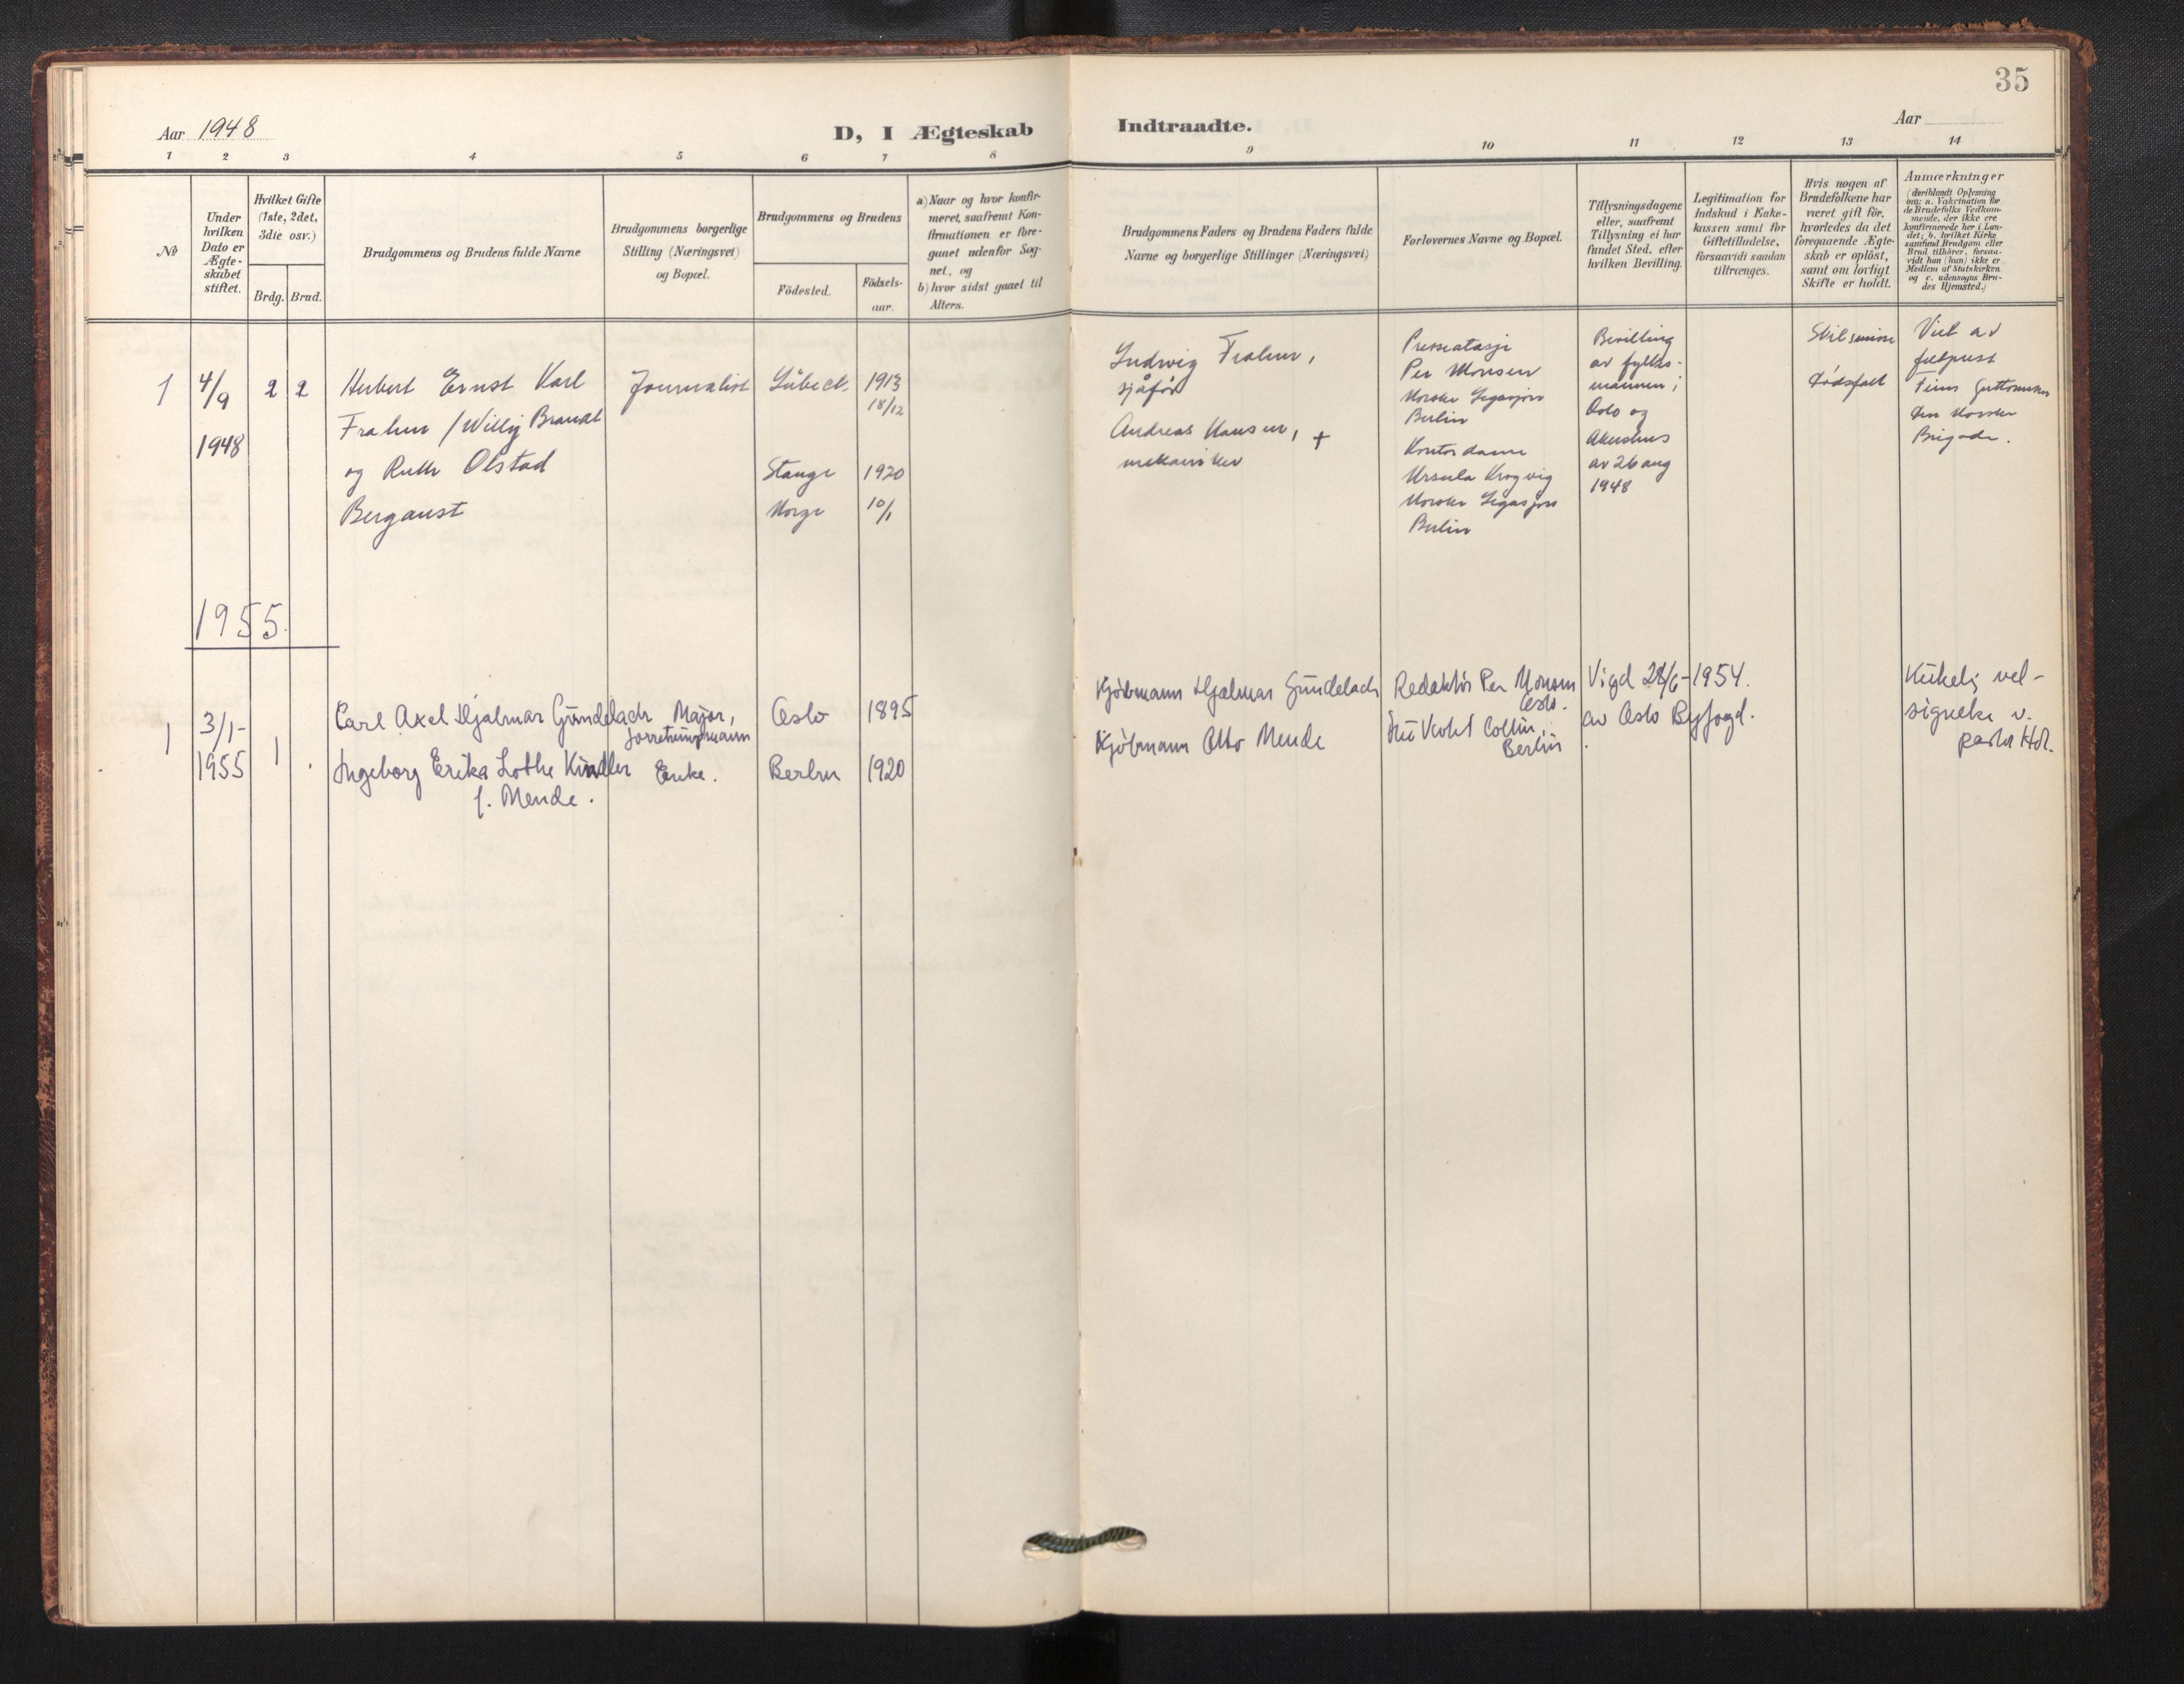 35
Aar 1948
D, I Ægteskab Indtraadte.
Aar
1 2 3 4 5 6 7 8 9 10 11 12 13 14
№
Under
hvilken
Dato er
Ægte-
skabet
stiftet.
Hvilket Gifte
(1ste, 2det,
3die osv.)
Brdg. Brud.
Brudgommens og Brudens fulde Navne
Brudgommens borgerlige
Stilling (Næringsvei)
og Bopæl.
Brudgommens og Brudens
Födested.
Födsels-
aar.
a) Naar og hvor konfir-
meret, saafremt Kon-
firmationen er fore-
gaaet udenfor Sog-
net, og
b) hvor sidst gaaet til
Alters.
Brudgommens Faders og Brudens Faders fulde
Navne og borgerlige Stillinger (Næringsvei)
Forlovernes Navne og Bopæl.
Tillysningsdagene
eller, saafremt
Tillysning ei har
fundet Sted, efter
hvilken Bevilling.
Legitimation for
Indskud i Enke-
kassen samt for
Giftetilladelse,
forsaavidt saadan
tiltrænges.
Hvis nogen af
Brudefolkene har
været gift för,
hvorledes da det
foregaaende Ægte-
skab er oplöst,
samt om lovligt
Skifte er holdt.
Anmærkninger
(deriblandt Oplysning
om: a. Vakcination for
de Brudefolks Vedkom-
mende, der ikke ere
konfirmerede her i Lan-
det; b. hvilket Kirke-
samfund Brudgom eller
Brud tilhörer, forsaa-
vidt han (hun) ikke er
Medlem af Statskirken
og c. udensogns Bru-
des Hjemsted.)
1
4/9
1948
2 2
Herbert Ernst Karl
Frahm / Willy Brandt
og Ruth Olstad
Bergaust
Journalist
Lübeck
1913
18/12
Stange
Norge
1920
10/1
Ludwig Frahm,
sjåfør
Andreas Hansen, +
mekaniker
Presseatasje
Per Monsen
Norske Legasjon
Berlin
Kontordame
Ursula Krogvig
Norske Legasjon
Berlin
Bevilling
av fylkes-
mannen i
Oslo og
Akershus
av 26 aug
1948
Skilsmisse
Dødsfall
Viet av
feltprest
Finn
den Norske
Brigade.
1955.
1
3/1-
1955
1
Carl Axel Hjalmar Gündelach
Ingeborg Erika Lothe Kindler
f. Mende.
Major,
forretningsmann
Enke.
Oslo
1895
Berlin
1920
Kjøbmann Hjalmar Gündelach
Kjøbmann Otto Mende
Redaktør Per Monsen
Oslo.
Violet Collin,
Berlin
Vigd 28/6-1954.
av Oslo Byfogd.
Kirkelig vel-
signelse v.
pastor